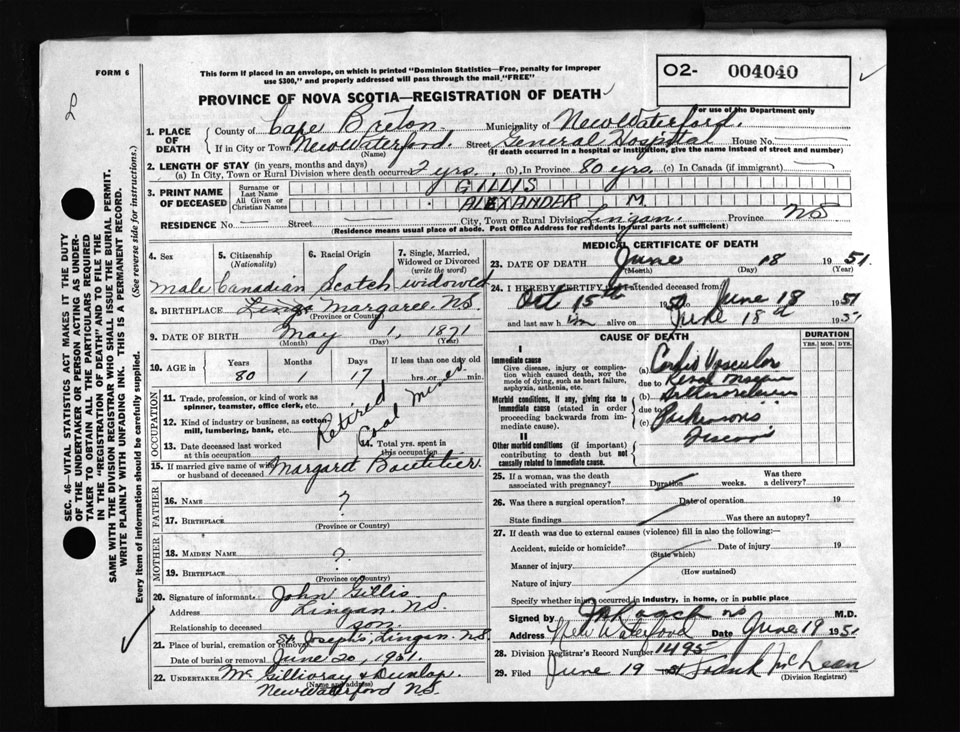 FORM 6
This form if placed in an envelope, on which is printed "Dominion Statistics—Free, penalty for improper
use $300," and properly addressed will pass through the mail "FREE"
O2- 004040
PROVINCE OF NOVA SCOTIA—REGISTRATION OF DEATH
For use of the Department only
1. PLACE OF DEATH
County of Cape Breton Municipality of New Waterford.
If in City or Town New Waterford. Street General Hospital House No.
(Name) (If death occurred in a hospital or institution, give the name instead of street and number)
2. LENGTH OF STAY (in years, months and days)
(a) In City, Town or Rural Division where death occurred 2 yrs. (b) In Province 80 yrs. (c) In Canada (if immigrant)
3. PRINT NAME OF DECEASED
Surname or Last Name GILLIS
All Given or Christian Names ALEXANDER M.
RESIDENCE No. Street City, Town or Rural Division Lingan. Province NS
(Residence means usual place of abode. Post Office Address for residents in rural parts not sufficient)
4. Sex 5. Citizenship (Nationality) 6. Racial Origin 7. Single, Married, Widowed or Divorced (write the word)
Male Canadian Scotch widowed
8. BIRTHPLACE Margaree. NS.
(Province or Country)
9. DATE OF BIRTH May 1, 1871
(Month) (Day) (Year)
10. AGE in Years Months Days If less than one day old
80 1 17 hrs. or min.
OCCUPATION
11. Trade, profession, or kind of work as spinner, teamster, office clerk, etc. Retired
12. Kind of industry or business, as cotton mill, lumbering, bank, etc. Coal Miner
13. Date deceased last worked at this occupation 14. Total yrs. spent in this occupation
15. If married give name of wife or husband of deceased Margaret Boutilier.
FATHER
16. NAME ?
17. BIRTHPLACE
(Province or Country)
MOTHER
18. MAIDEN NAME ?
19. BIRTHPLACE
(Province or Country)
20. Signature of informant John Gillis
Address Lingan. NS.
Relationship to deceased son.
21. Place of burial, cremation or removal St. Joseph's, Lingan. NS
Date of burial or removal June 20, 1951.
22. UNDERTAKER McGillivray & Dunlop.
New Waterford NS.
MEDICAL CERTIFICATE OF DEATH
23. DATE OF DEATH June 18 1951.
(Month) (Day) (Year)
24. I HEREBY CERTIFY that I attended deceased from
Oct 15th 1950 to June 18 1951
and last saw him alive on June 18 195
CAUSE OF DEATH DURATION
YRS. MOS. DYS.
I
Immediate cause
Give disease, injury or complication which caused death, NOT the mode of dying, such as heart failure, asphyxia, asthenia, etc.
(a) Cardio Vascular
due to Renal
Morbid conditions, if any, giving rise to immediate cause (stated in order proceeding backwards from immediate cause).
(b)
due to
(c) Parkinsons
II
Other morbid conditions (if important) contributing to death but not causally related to immediate cause.
25. If a woman, was the death associated with pregnancy? Duration weeks. Was there a delivery?
26. Was there a surgical operation? Date of operation 19
State findings Was there an autopsy?
27. If death was due to external causes (violence) fill in also the following:—
Accident, suicide or homicide? Date of injury 19
(State which)
Manner of injury
(How sustained)
Nature of injury
Specify whether injury occurred in industry, in home, or in public place
Signed by M.D.
Address New Waterford Date June 19 195
28. Division Registrar's Record Number 1495
29. Filed June 19 1951 Frank McLean
(Division Registrar)
SEC. 46—VITAL STATISTICS ACT MAKES IT THE DUTY
OF THE UNDERTAKER OR PERSON ACTING AS UNDERTAKER TO OBTAIN ALL THE PARTICULARS REQUIRED
IN THE "REGISTRATION OF DEATH" AND TO FILE THE
SAME WITH THE DIVISION REGISTRAR WHO SHALL ISSUE THE BURIAL PERMIT.
WRITE PLAINLY WITH UNFADING INK. THIS IS A PERMANENT RECORD.
Every item of information should be carefully supplied. (See reverse side for instructions.)